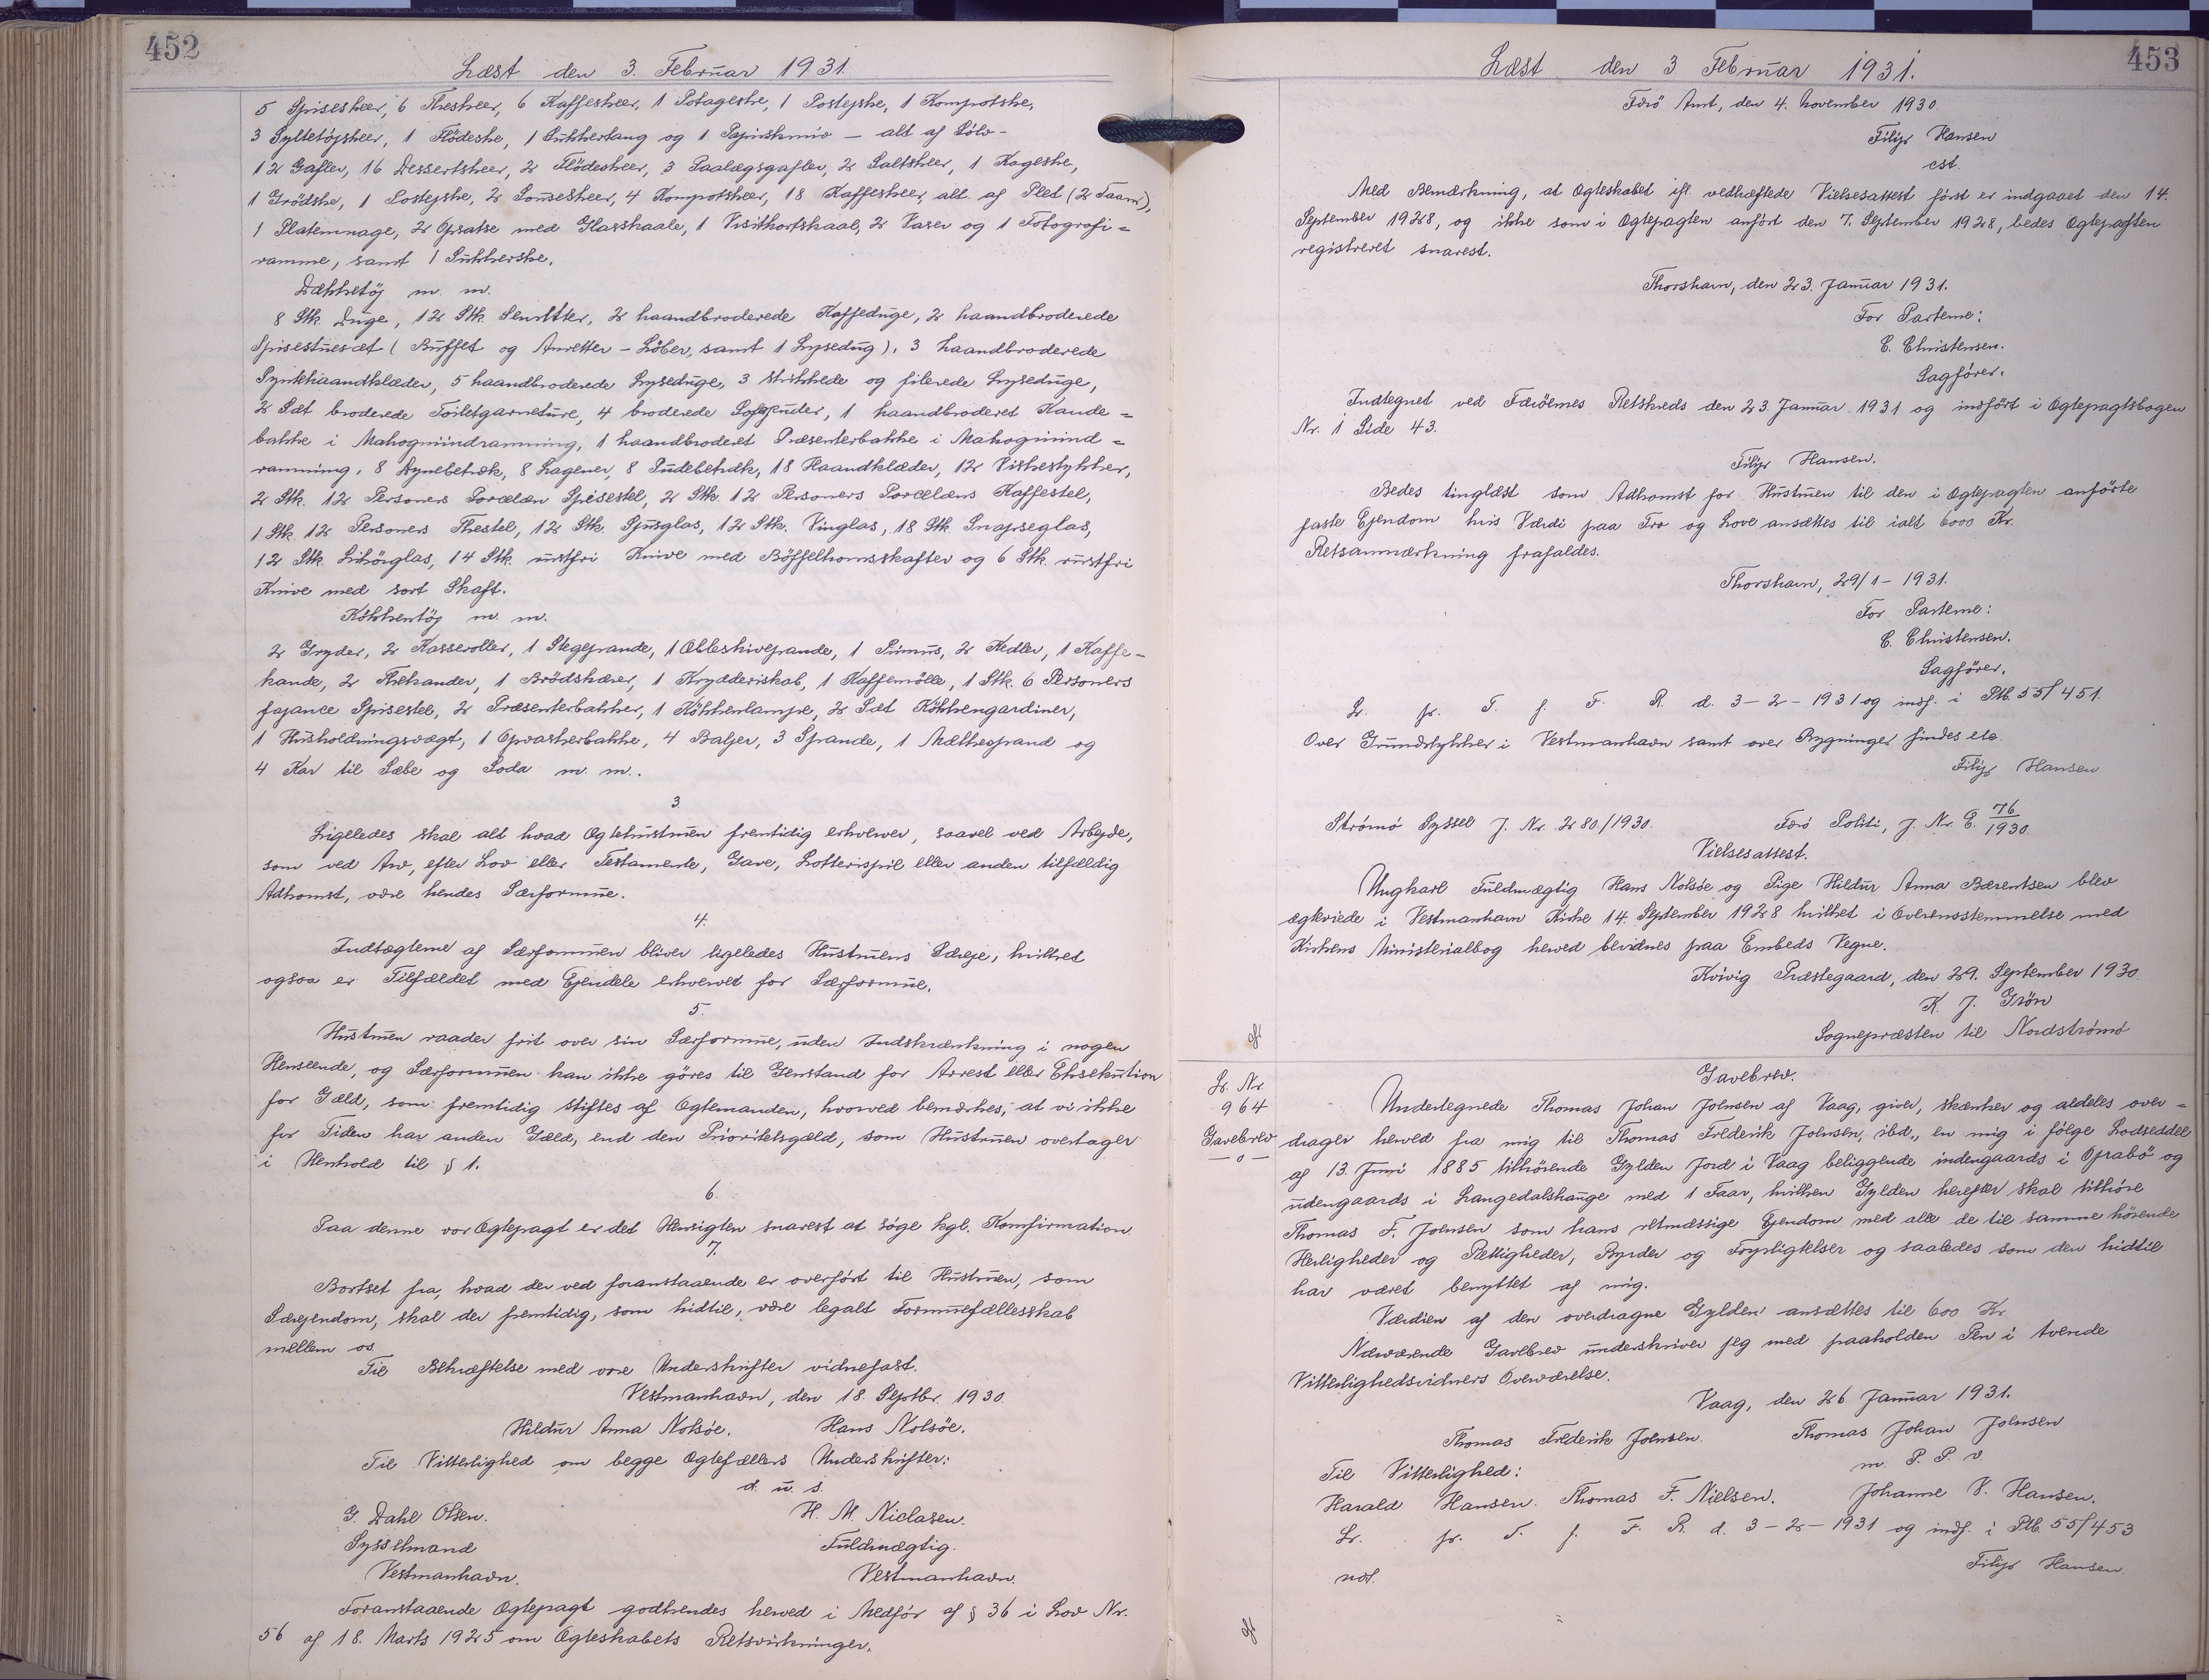 452
Læst den 3. Februar 1931.
5 Spiseskeer, 6 Theskeer, 6 Kaffeskeer, 1 Potageske, 1 Postejske, 1 Kompotske,
3 Syltetøjskeer, 1 Flödeske, 1 Sukkertang og 1 Papirskniv – alt af Sölv –
12 Gafler, 16 Dessertskeer, 2 Flödeskeer, 3 Paalægsgafler, 2 Saltskeer, 1 Kageske,
1 Grödske, 1 Postejske, 2 Souseskeer, 4 Kompotskeer, 18 Kaffeskeer, alt af Plet (2 Taarn),
1 Platemnage, 2 Opsatse med Glasskaale, 1 Visitkortskaal, 2 Vaser og 1 Fotografi=
ramme, samt 1 Sukkerske.
Dækketöj m. m.
8 Stk. Duge, 12 Stk. Servitter, 2 haandbroderede Kaffeduge, 2 haandbroderede
Spisestuesæt (Buffet og Anretter – Löber, samt 1 Lysedug), 3 haandbroderede
Pyntehaandklæder, 5 haandbroderede Lyseduge, 3 strikkede og filerede Lyseduge,
2 Sæt broderede Toiletgarneture, 4 broderede Sofapuder, 1 haandbroderet Kande=
bakke i Mahogniindramning, 1 haandbroderet Præsenterbakke i Mahogniind=
ramning, 8 Dynebetræk, 8 Lagener, 8 Pudebetræk, 18 Haandklæder, 12 Viskestykker,
2 Stk. 12 Personers Porcelæn Spisestel, 2 Stk. 12 Personers Porcelæns Kaffestel,
1 Stk. 12 Personers Thestel, 12 Stk. Sjusglas, 12 Stk. Vinglas, 18 Stk. Snapseglas,
12 Stk. Likörglas, 14 Stk. rustfri Knive med Böffelhornsskafter og 6 Stk. rustfri
Knive med sort Skaft.
Kökkentöj m. m.
2 Gryder, 2 Kasseroller, 1 Stegepande, 1 Æbleskivepande, 1 Primus, 2 Kedler, 1 Kaffe=
kande, 2 Thekander, 1 Brödskærer, 1 Krydderiskab, 1 Kaffemölle, 1 Stk. 6 Personers
fajance Spisestel, 2 Præsenterbakker, 1 Kökkenlampe, 2 Sæt Kökkengardiner,
1 Husholdningsvægt, 1 Opvaskerbakke, 4 Baljer, 3 Spande, 1 Mælkespand og
4 Kar til Sæbe og Soda m. m..
3
Ligeledes skal alt hvad Ægtehustruen fremtidig erhverver, saavel ved Arbejde,
som ved Arv, efter Lov eller Testamente, Gave, Lotterispil eller anden tilfældig
Adkomst, være hendes Særformue.
4.
Indtægterne af Særformuen bliver ligeledes Hustruens Særeje, hvilket
ogsaa er Tilfældet med Ejendele erhvervet for Særformue.
5.
Hustruen raader frit over sin Særformue, uden Indskrænkning i nogen
Henseende, og Særformuen kan ikke göres til Genstand for Arrest eller Eksekution
for Gæld, som fremtidig stiftes af Ægtemanden, hvorved bemærkes, at vi ikke
for Tiden har anden Gæld, end den Prioritetsgæld, som Hustruen overtager
i Henhold til § 1.
6.
Paa denne vor Ægtepagt er det Hensigten snarest at söge kgl. Konfirmation
7.
Bortset fra, hvad der ved foranstaaende er overfört til Hustruen, som
Særejendom, skal der fremtidig, som hidtil, være legalt Formuefællesskab
mellem os.
Til Bekræftelse med vore Underskrifter vidnefast.
Vestmanhavn, den 18. Septbr. 1930.
Hildur Anna Nolsøe. Hans Nolsöe.
Til Vitterlighed om begge Ægtefællers Underskrifter:
d. u. s.
G. Dahl Olsen. H. M. Niclasen.
Sysselmand Fuldmægtig.
Vestmanhavn. Vestmanhavn.
Foranstaaende Ægtepagt godkendes herved i Medför af § 36 i Lov Nr.
56 af 18. Marts 1925 om Ægteskabets Retsvirkninger.
453
Læst den 3 Februar 1931.
Færö Amt, den 4. November 1930
Filip Hansen
cst.
Med Bemærkning, at Ægteskabet ifl. vedhæftede Vielsesattest först er indgaaet den 14.
September 1928, og ikke som i Ægtepagten anfört den 7. September 1928, bedes Ægtepagten
registreret snarest.
Thorshavn, den 23. Januar 1931.
For Parterne:
C. Christensen.
Sagförer.
Indtegnet ved Færöernes Retskreds den 23. Januar 1931 og indfört i Ægtepagtsbogen
Nr. 1 Side 43.
Filip Hansen.
Bedes tinglæst som Adkomst for Hustruen til den i Ægtepagten anförte
faste Ejendom hvis Værdi paa Tro og Love ansættes til ialt 6000 Kr.
Retsanmærkning frafaldes.
Thorshavn, 29/1 – 1931.
For Parterne:
C. Christensen.
Sagförer.
Lr. fr. T. f. F. R. d. 3 – 2 – 1931 og indf. i Ptb. 55/451.
Over Grundstykker i Vestmanhavn samt over Bygninger findes etc.
Filip Hansen
Strömö Syssel J. Nr. 280/1930. Færö Politi, J. Nr. E. 76/1930.
Vielsesattest.
Ungkarl Fuldmægtig Hans Nolsøe og Pige Hildur Anna Bærentsen blev
ægteviede i Vestmanhavn Kirke 14. September 1928 hvilket i Overensstemmelse med
Kirkens Ministerialbog herved bevidnes paa Embeds Vegne.
Kvivig Præstegaard, den 29. September 1930.
K. J. Grön
Sognepræsten til Nordströmö
Lr. Nr.
964
Gavebrev
– o –
Gavebrev.
Undertegnede Thomas Johan Joensen af Vaag, giver, skænker og aldeles over=
drager herved fra mig til Thomas Frederik Joensen, ibd., en mig i fölge Lodseddel
af 13. Juni 1885 tilhörende Gylden Jord i Vaag beliggende indengaards i Oprabö og
udengaards i Langedalshauge med 1 Faar, hvilken Gylden herefter skal tilhöre
Thomas F. Joensen som hans retmæssige Ejendom med alle de til samme hörende
Herligheder og Rettigheder, Byrder og Forpligtelser og saaledes som den hidtil
har været benyttet af mig.
Værdien af den overdragne Gylden ansættes til 600 Kr.
Nærværende Gavebrev underskriver jeg med paaholden Pen i tvende
Vitterlighedsvidners Overværelse.
Vaag, den 26 Januar 1931.
Thomas Frederik Joensen. Thomas Johan Joensen
m. P. P. v.
Til Vitterlighed:
Harald Hansen. Thomas F. Nielsen. Johanne V. Hansen.
Lr. fr. T. f. F. R. d. 3 – 2 – 1931 og indf. i Ptb. 55/453
not. Filip Hansen.